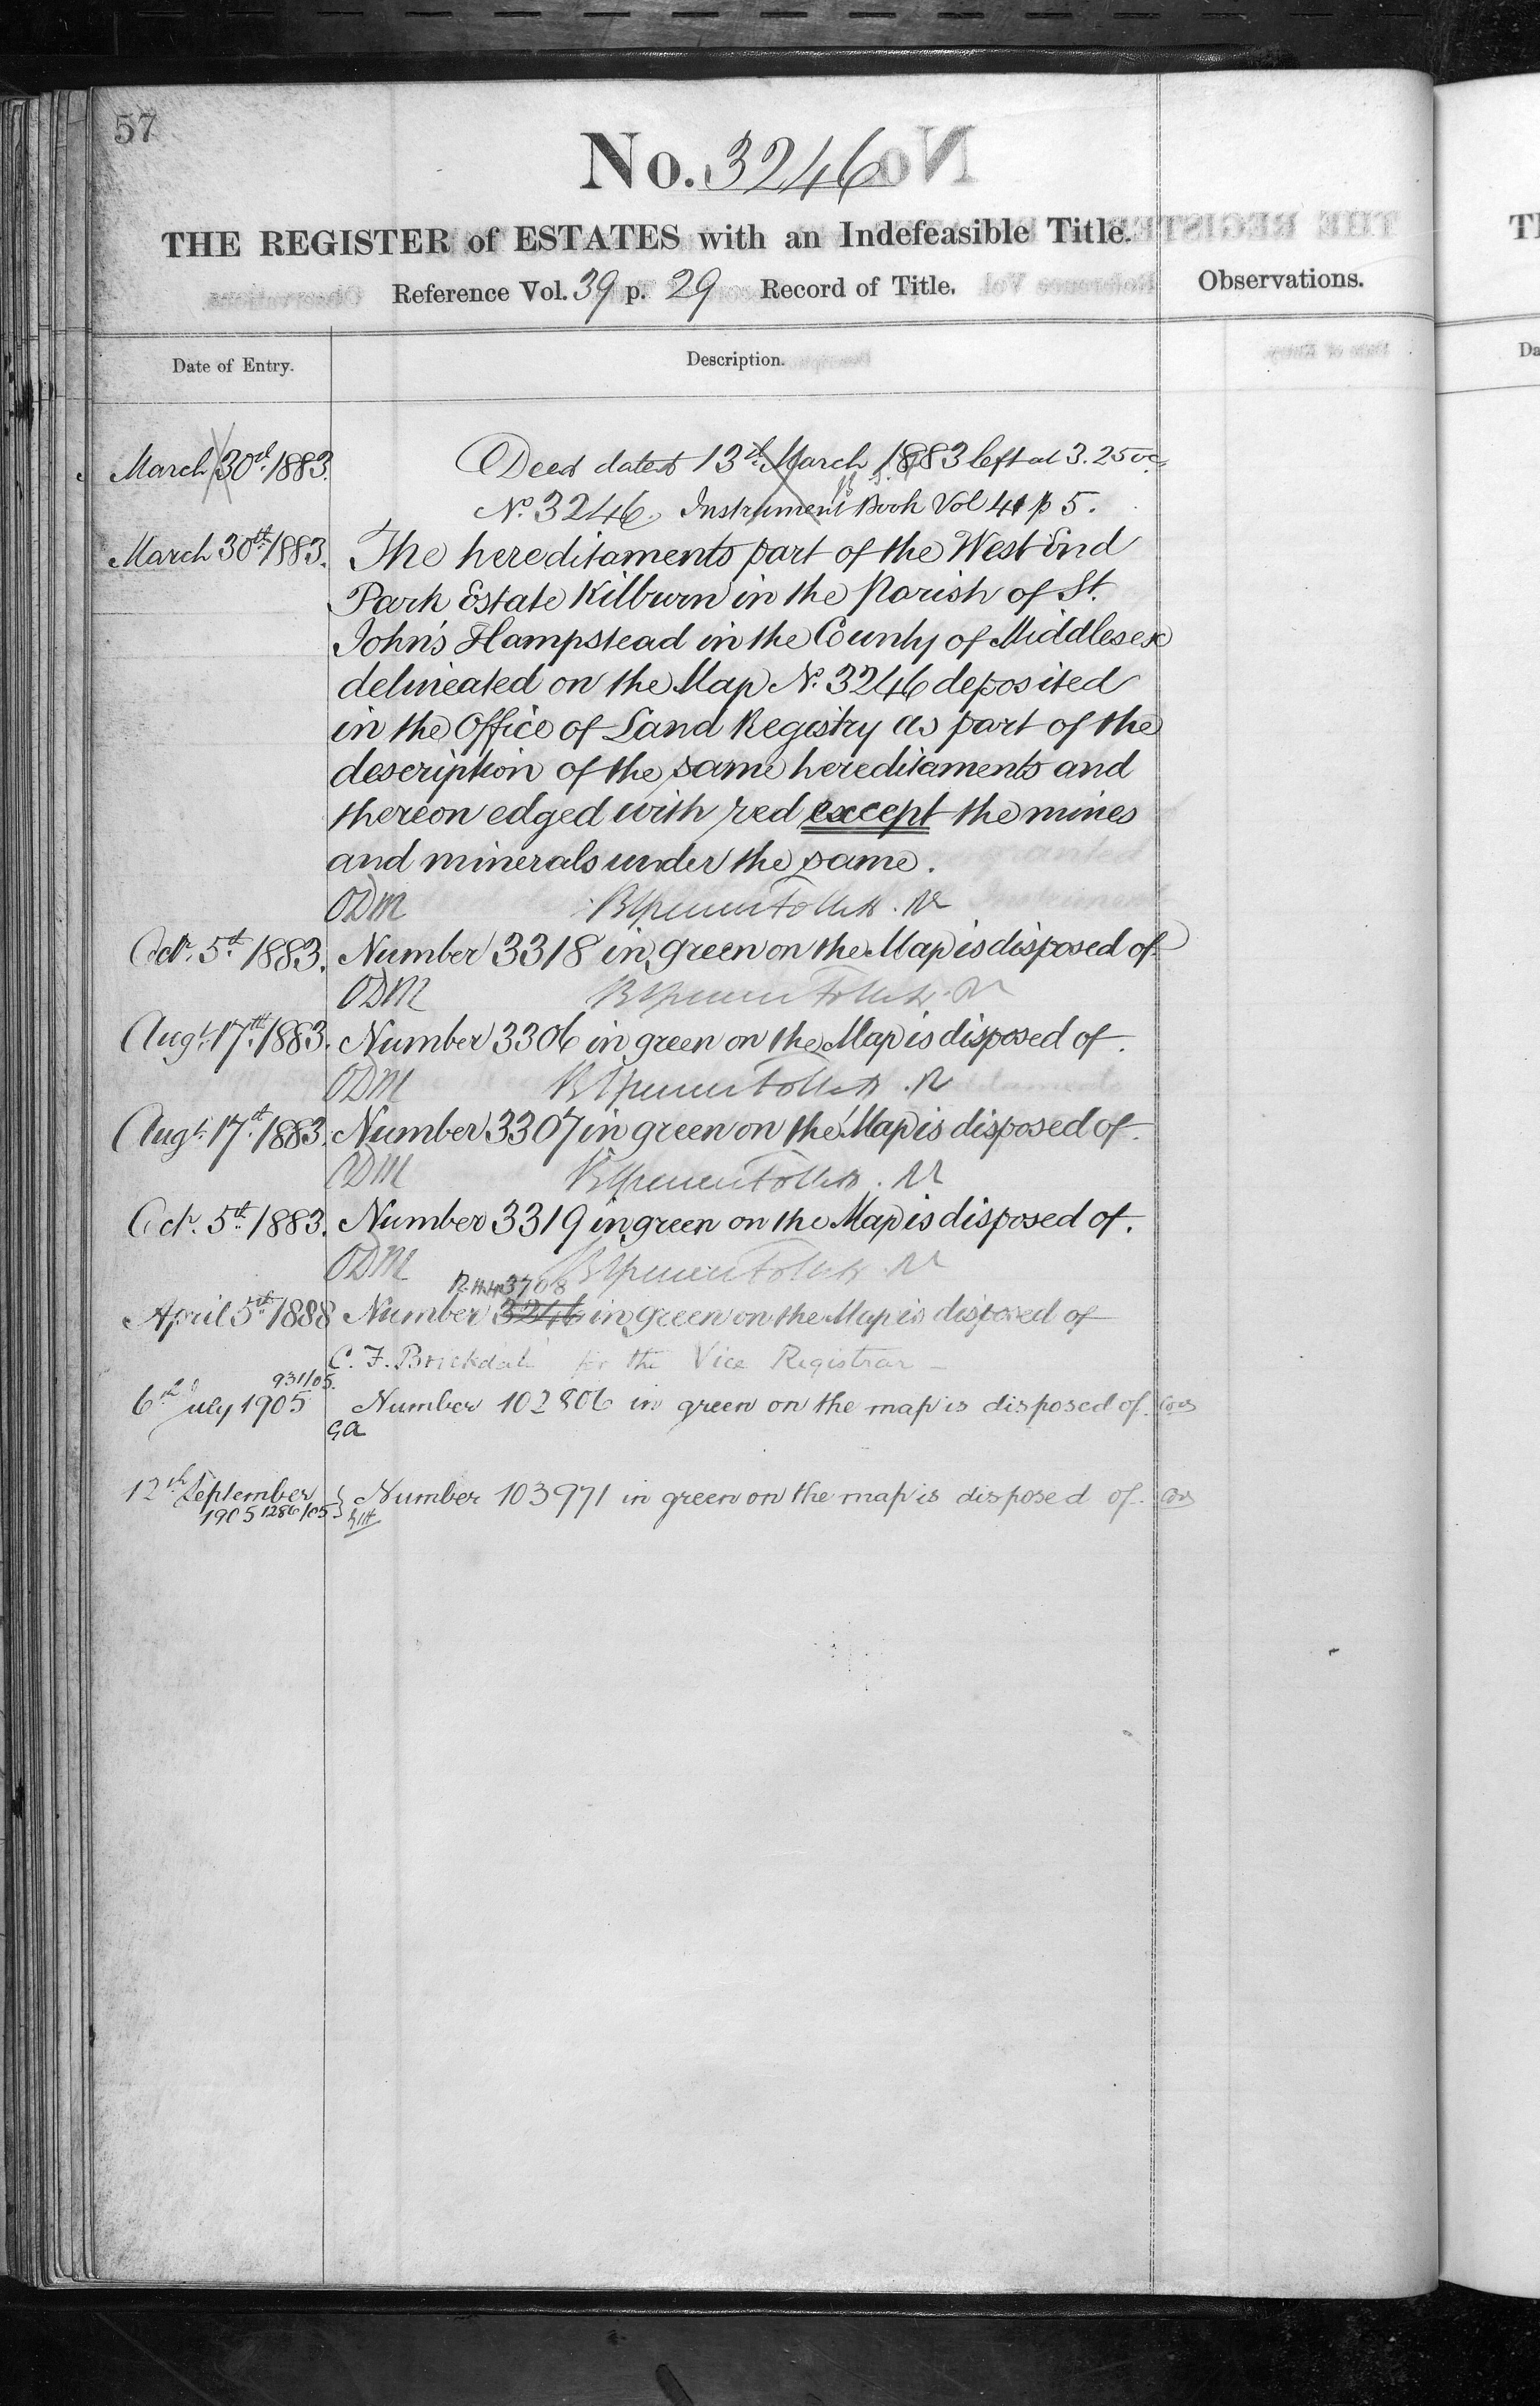 57
No. 3246
THE REGISTER of ESTATES with an Indefeasible Title.
Reference Vol. 39 p. 29 Record of Title.
Observations.
Date of Entry.
Description.
March 30th 1883. Deed dated 13th March 1883 left at 3.25
No. 3246. Instrument Book Vol 41 p 5.
March 30th 1883. The hereditaments part of the West End
Park Estate Kilburn in the Parish of St.
John's Hampstead in the County of Middlesex
delineated on the Map No. 3246 deposited
in the Office of Land Registry as part of the
description of the same hereditaments and
thereon edged with red except the mines
and minerals under the same.
ODM
Octr. 5th 1883. Number 3318 in green on the Map is disposed of
ODM
Augt. 17th 1883. Number 3306 in green on the Map is disposed of.
ODM
Augt. 17th 1883. Number 3307 in green on the Map is disposed of.
ODM
Octr. 5th 1883. Number 3319 in green on the Map is disposed of.
ODM
3708
April 5th 1888 Number 3246 in green on the Map is disposed of
C. F. Brickdale for the Vice Registrar
931/05.
6th July 1905 Number 102806 in green on the map is disposed of.
GA
12th September Number 103971 in green on the map is disposed of.
1905 1286/05